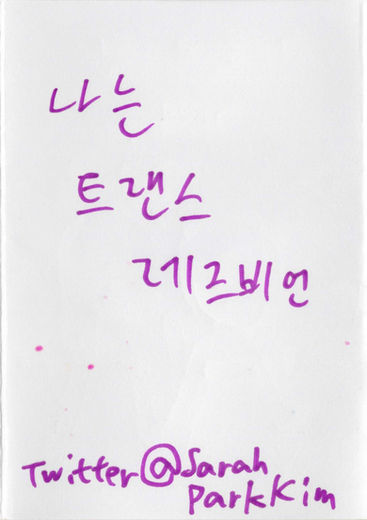 나는
트랜스
레즈비언
Twitter@Sarah
ParkKim